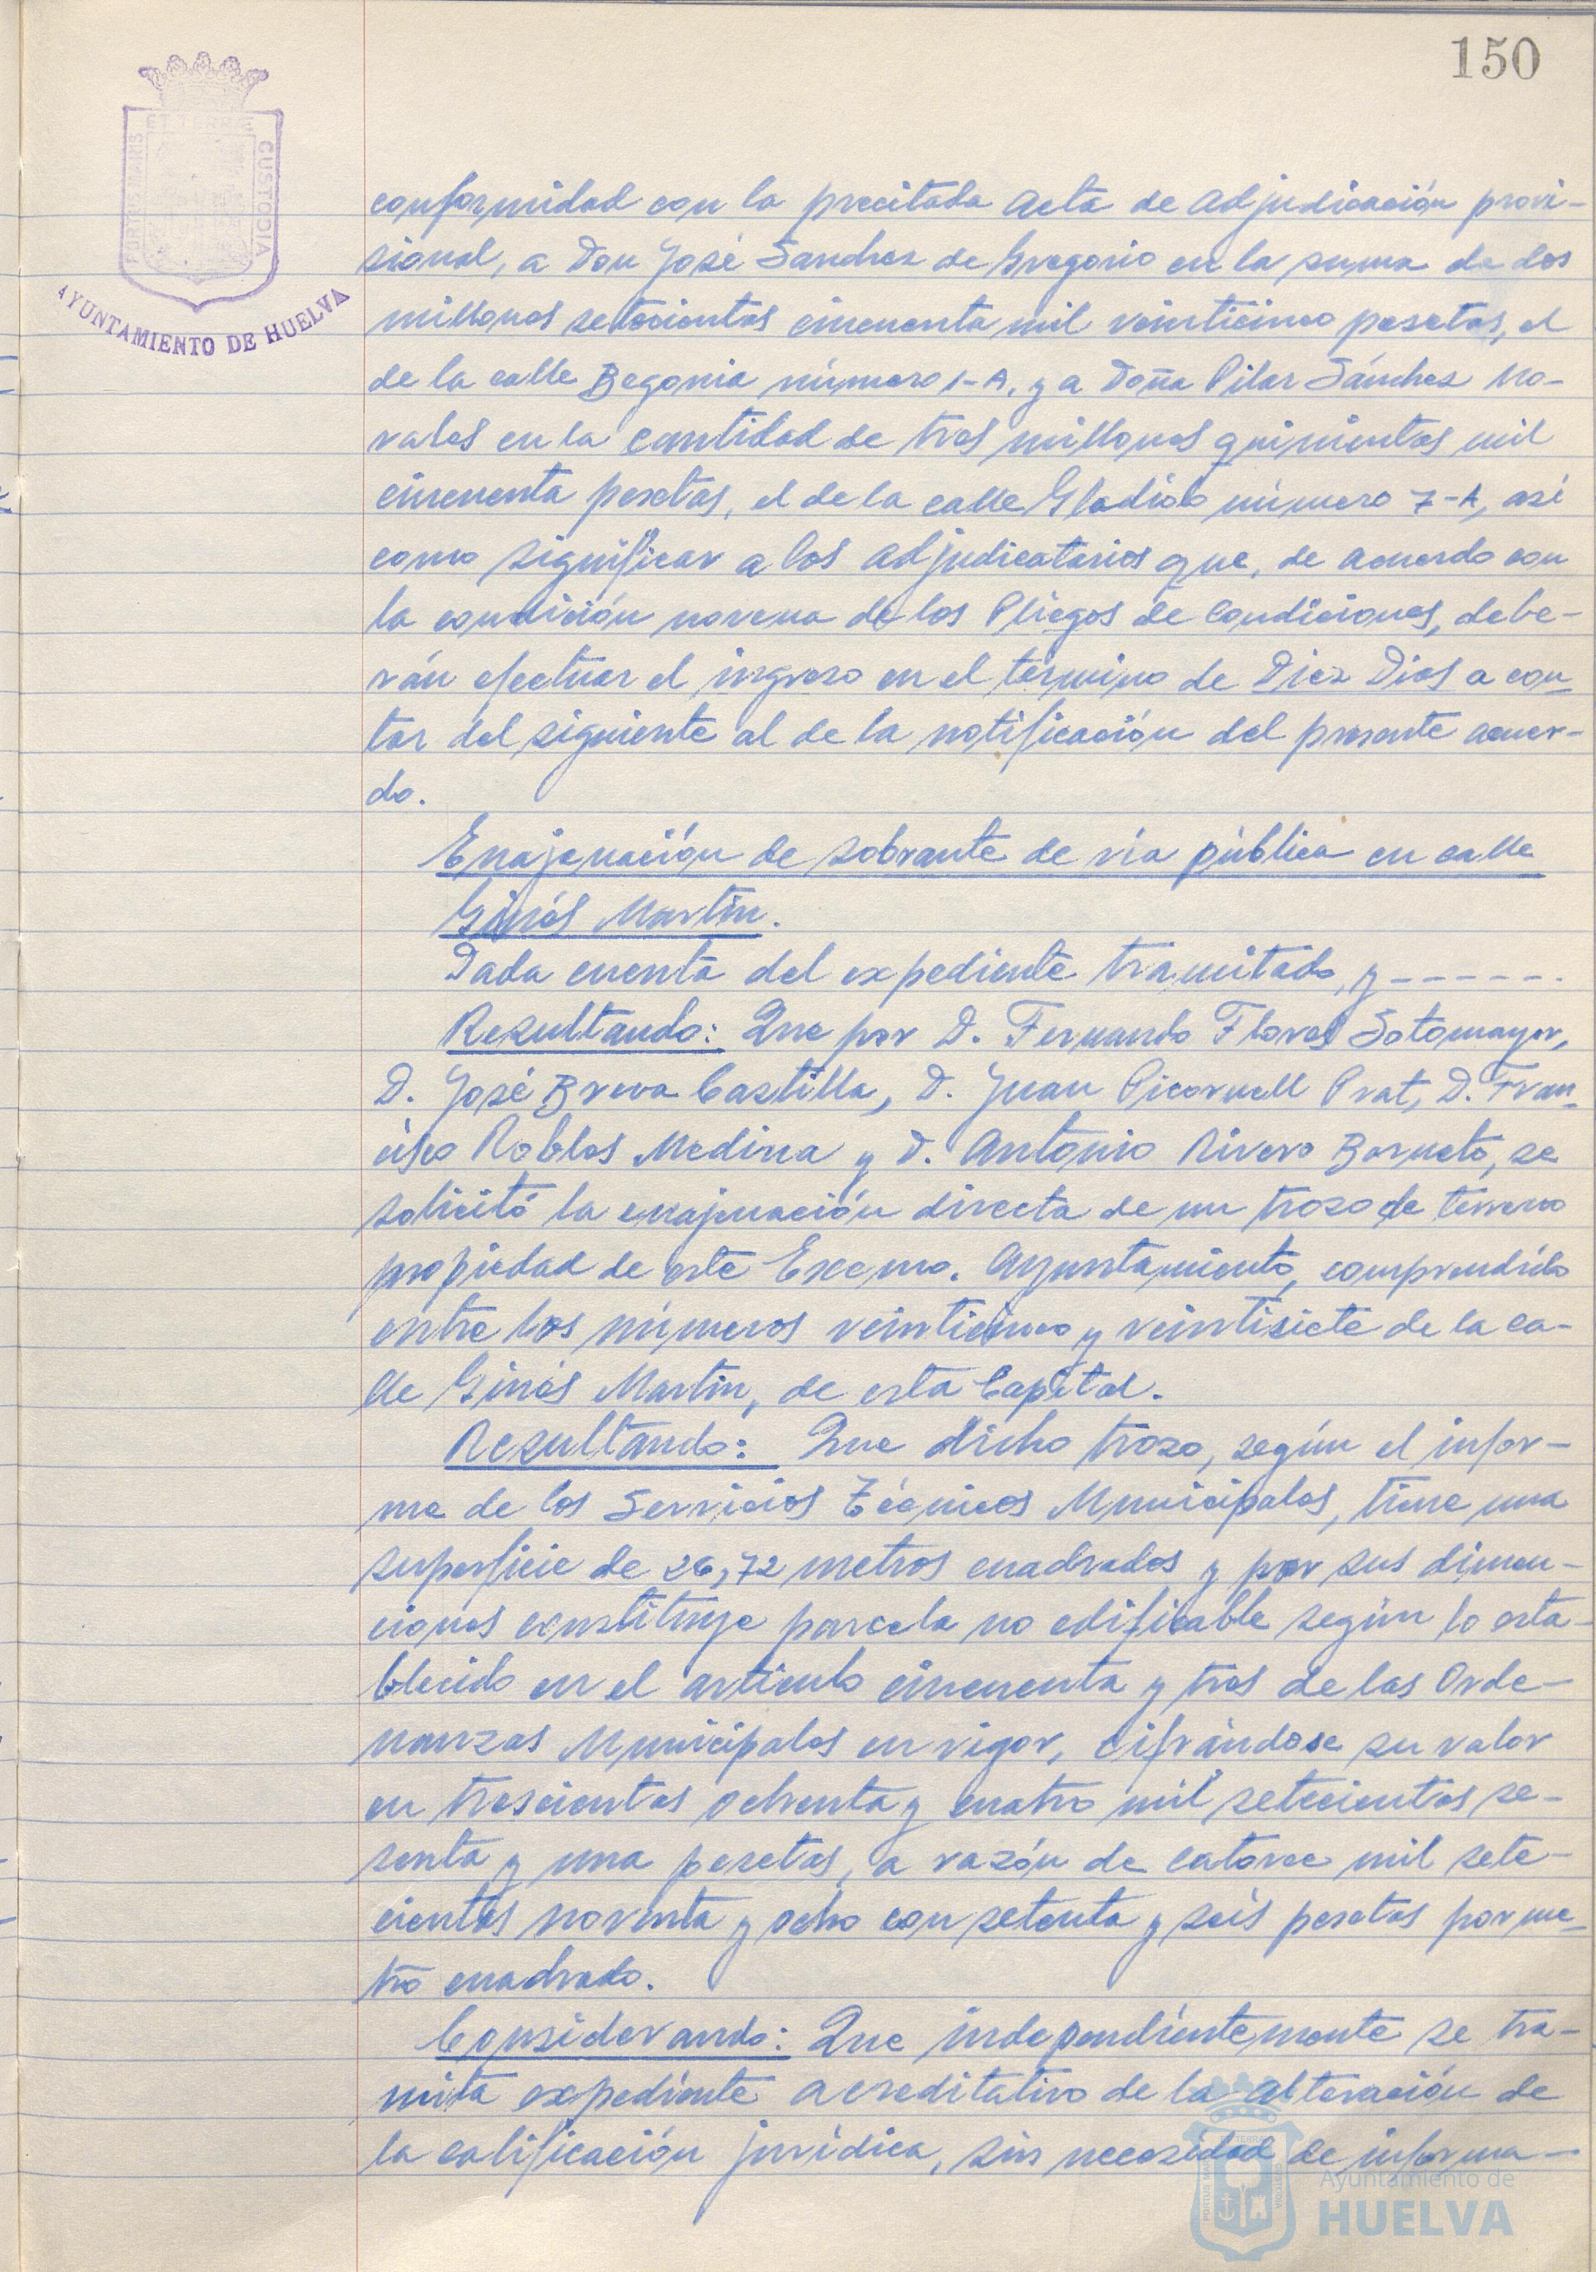 150
PORTUS MARIS ET TERRE CUSTODIA
AYUNTAMIENTO DE HUELVA
conformidad con la precitada acta de adjudicación provi-
sional, a Don José Sanchez de Gregorio en la suma de dos
millones setecientas cincuenta mil veinticinco pesetas, el
de la calle Begonia número 1-A, y a Doña Pilar Sánchez No-
vales en la cantidad de tres millones quinientas mil
cincuenta pesetas, el de la calle Gladiolo número 7-A, así
como significar a los adjudicatarios que, de acuerdo con
la condición novena de los Pliegos de Condiciones, debe-
rán efectuar el ingreso en el término de Diez Dias a con-
tar del siguiente al de la notificación del presente acuer-
do.
Enajenación de sobrante de vía pública en calle
Ginés Martín.
Dada cuenta del expediente tramitado, y ------
Resultando: Que por D. Fernando Flores Sotomayor,
D. José Breva Castilla, D. Juan Picornell Prat, D. Fran-
cisco Robles Medina y D. Antonio Rivero Borneto, se
solicitó la enajenación directa de un trozo de terreno
propiedad de este Excmo. Ayuntamiento, comprendido
entre los números veinticinco y veintisiete de la ca-
lle Ginés Martín, de esta Capital.
Resultando: Que dicho trozo, según el infor-
me de los Servicios Técnicos Municipales, tiene una
superficie de 26,72 metros cuadrados y por sus dimen-
ciones constituye parcela no edificable según lo esta-
blecido en el articulo cincuenta y tres de las Orde-
nanzas Municipales en vigor, cifrándose su valor
en trescientas ochenta y cuatro mil setecientas se-
senta y una pesetas, a razón de catorce mil sete-
cientas noventa y ocho con setenta y seis pesetas por me-
tro cuadrado.
Considerando: Que independientemente se tra-
mita expediente acreditativo de la alteración de
la calificación jurídica, sin necesidad de informa-
Ayuntamiento de
HUELVA